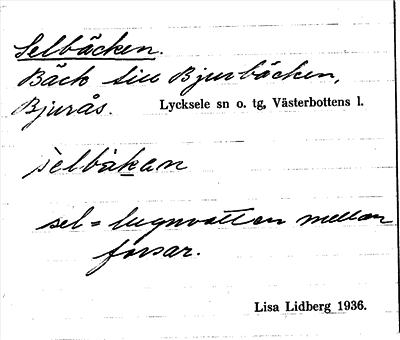 Selbäcken.
Bäck till Bjurbäcken,
Bjurås. Lycksele sn o. tg, Västerbottens l.
sèlbäkan
sel = lugnvatten mellan
forsar.
Lisa Lidberg 1936.